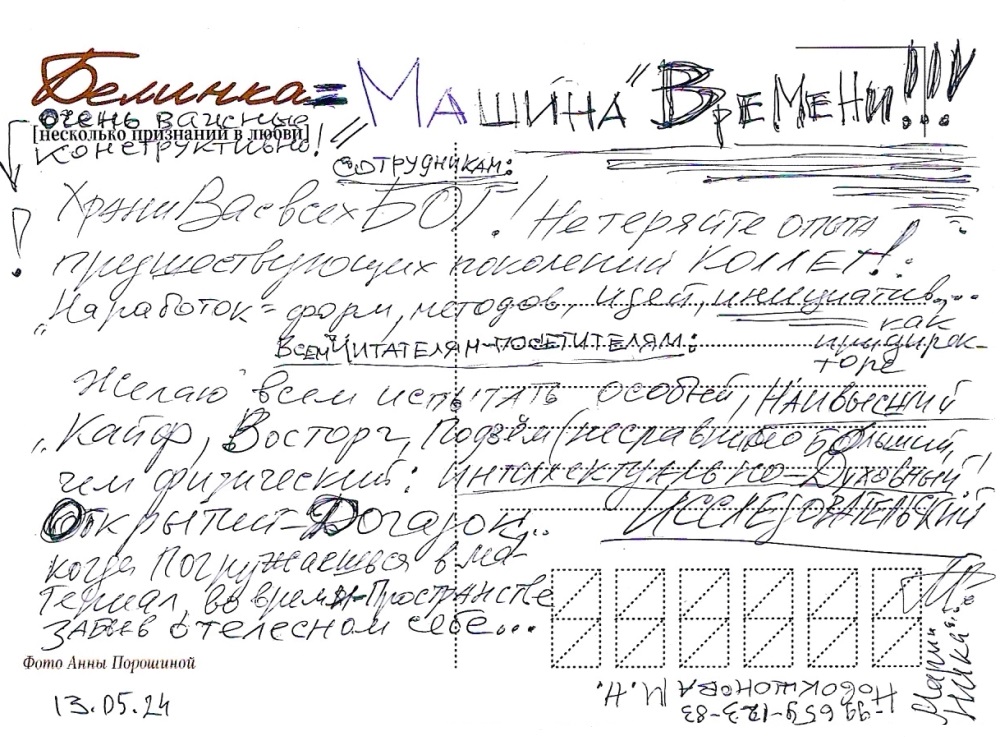 Белинка = "Машина Времени!!!"
очень важные
[несколько признаний в любви]
конструктивно!
Сотрудникам:
Храни Вас всех БОГ! Не теряйте опыта
предшествующих поколений КОЛЛЕГ!
"Наработок = форм, методов, идей, инициатив...
как
при дирек-
торе
Всем "Читателям-посетителям:
Желаю всем испытать особый, Наивысший
"Кайф, Восторг, Подъём (несравнимо больший,
чем физический: интеллектуально-Духовный!
Исследовательский
Открытий-Догадок..."
когда Погружаешься в ма-
териал, во времени-Пространстве
забыв о телесном себе...
Фото Анны Порошиной
13.05.24
Новокшонова М. Н.
Мария